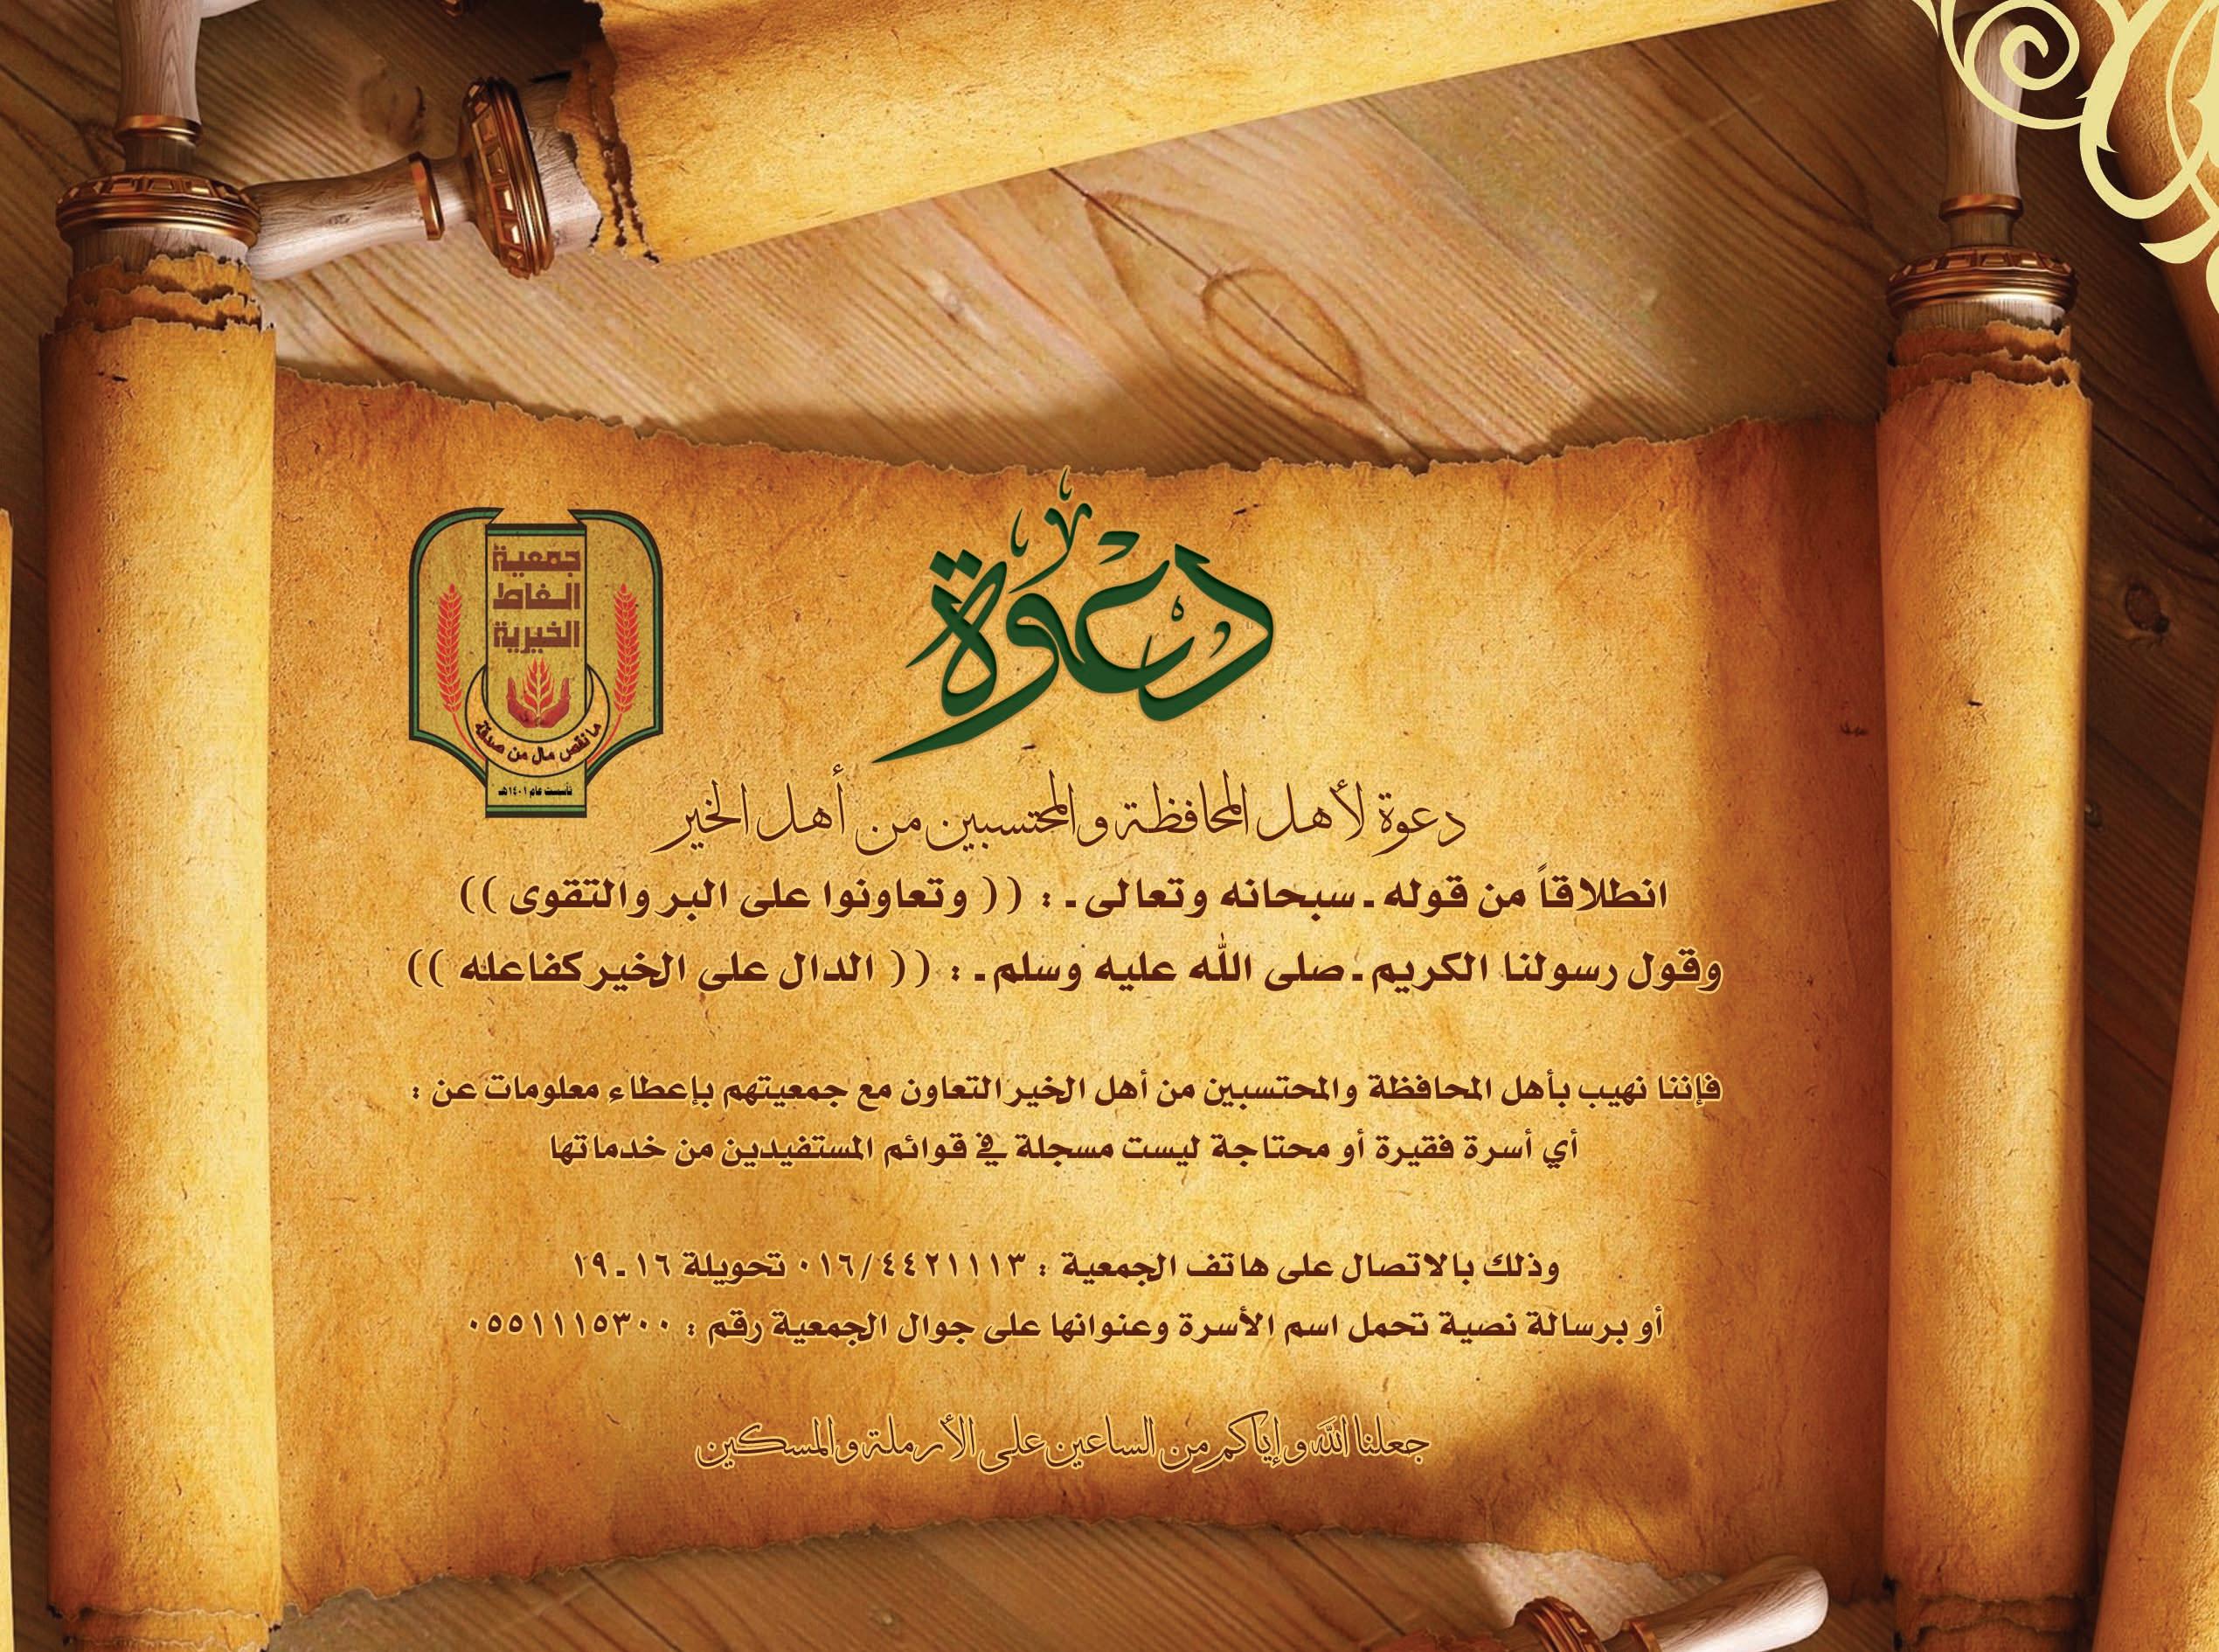 دعوة
جمعية
الغاط
الخيرية
ما نقص مال من صدقة
تأسست عام ١٤٠١هـ
دعوة لأهل المحافظة والمحتسبين من أهل الخير
انطلاقاً من قوله ـ سبحانه وتعالى ـ : (( وتعاونوا على البر والتقوى ))
وقول رسولنا الكريم ـ صلى الله عليه وسلم ـ : (( الدال على الخير كفاعله ))
فإننا نهيب بأهل المحافظة والمحتسبين من أهل الخير التعاون مع جمعيتهم بإعطاء معلومات عن :
أي أسرة فقيرة أو محتاجة ليست مسجلة في قوائم المستفيدين من خدماتها
وذلك بالاتصال على هاتف الجمعية : ٠١٦/٤٤٢١١١٣ تحويلة ١٦ ـ ١٩
أو برسالة نصية تحمل اسم الأسرة وعنوانها على جوال الجمعية رقم : ٠٥٥١١١٥٣٠٠
جعلنا الله وإياكم من الساعين على الأرملة والمسكين